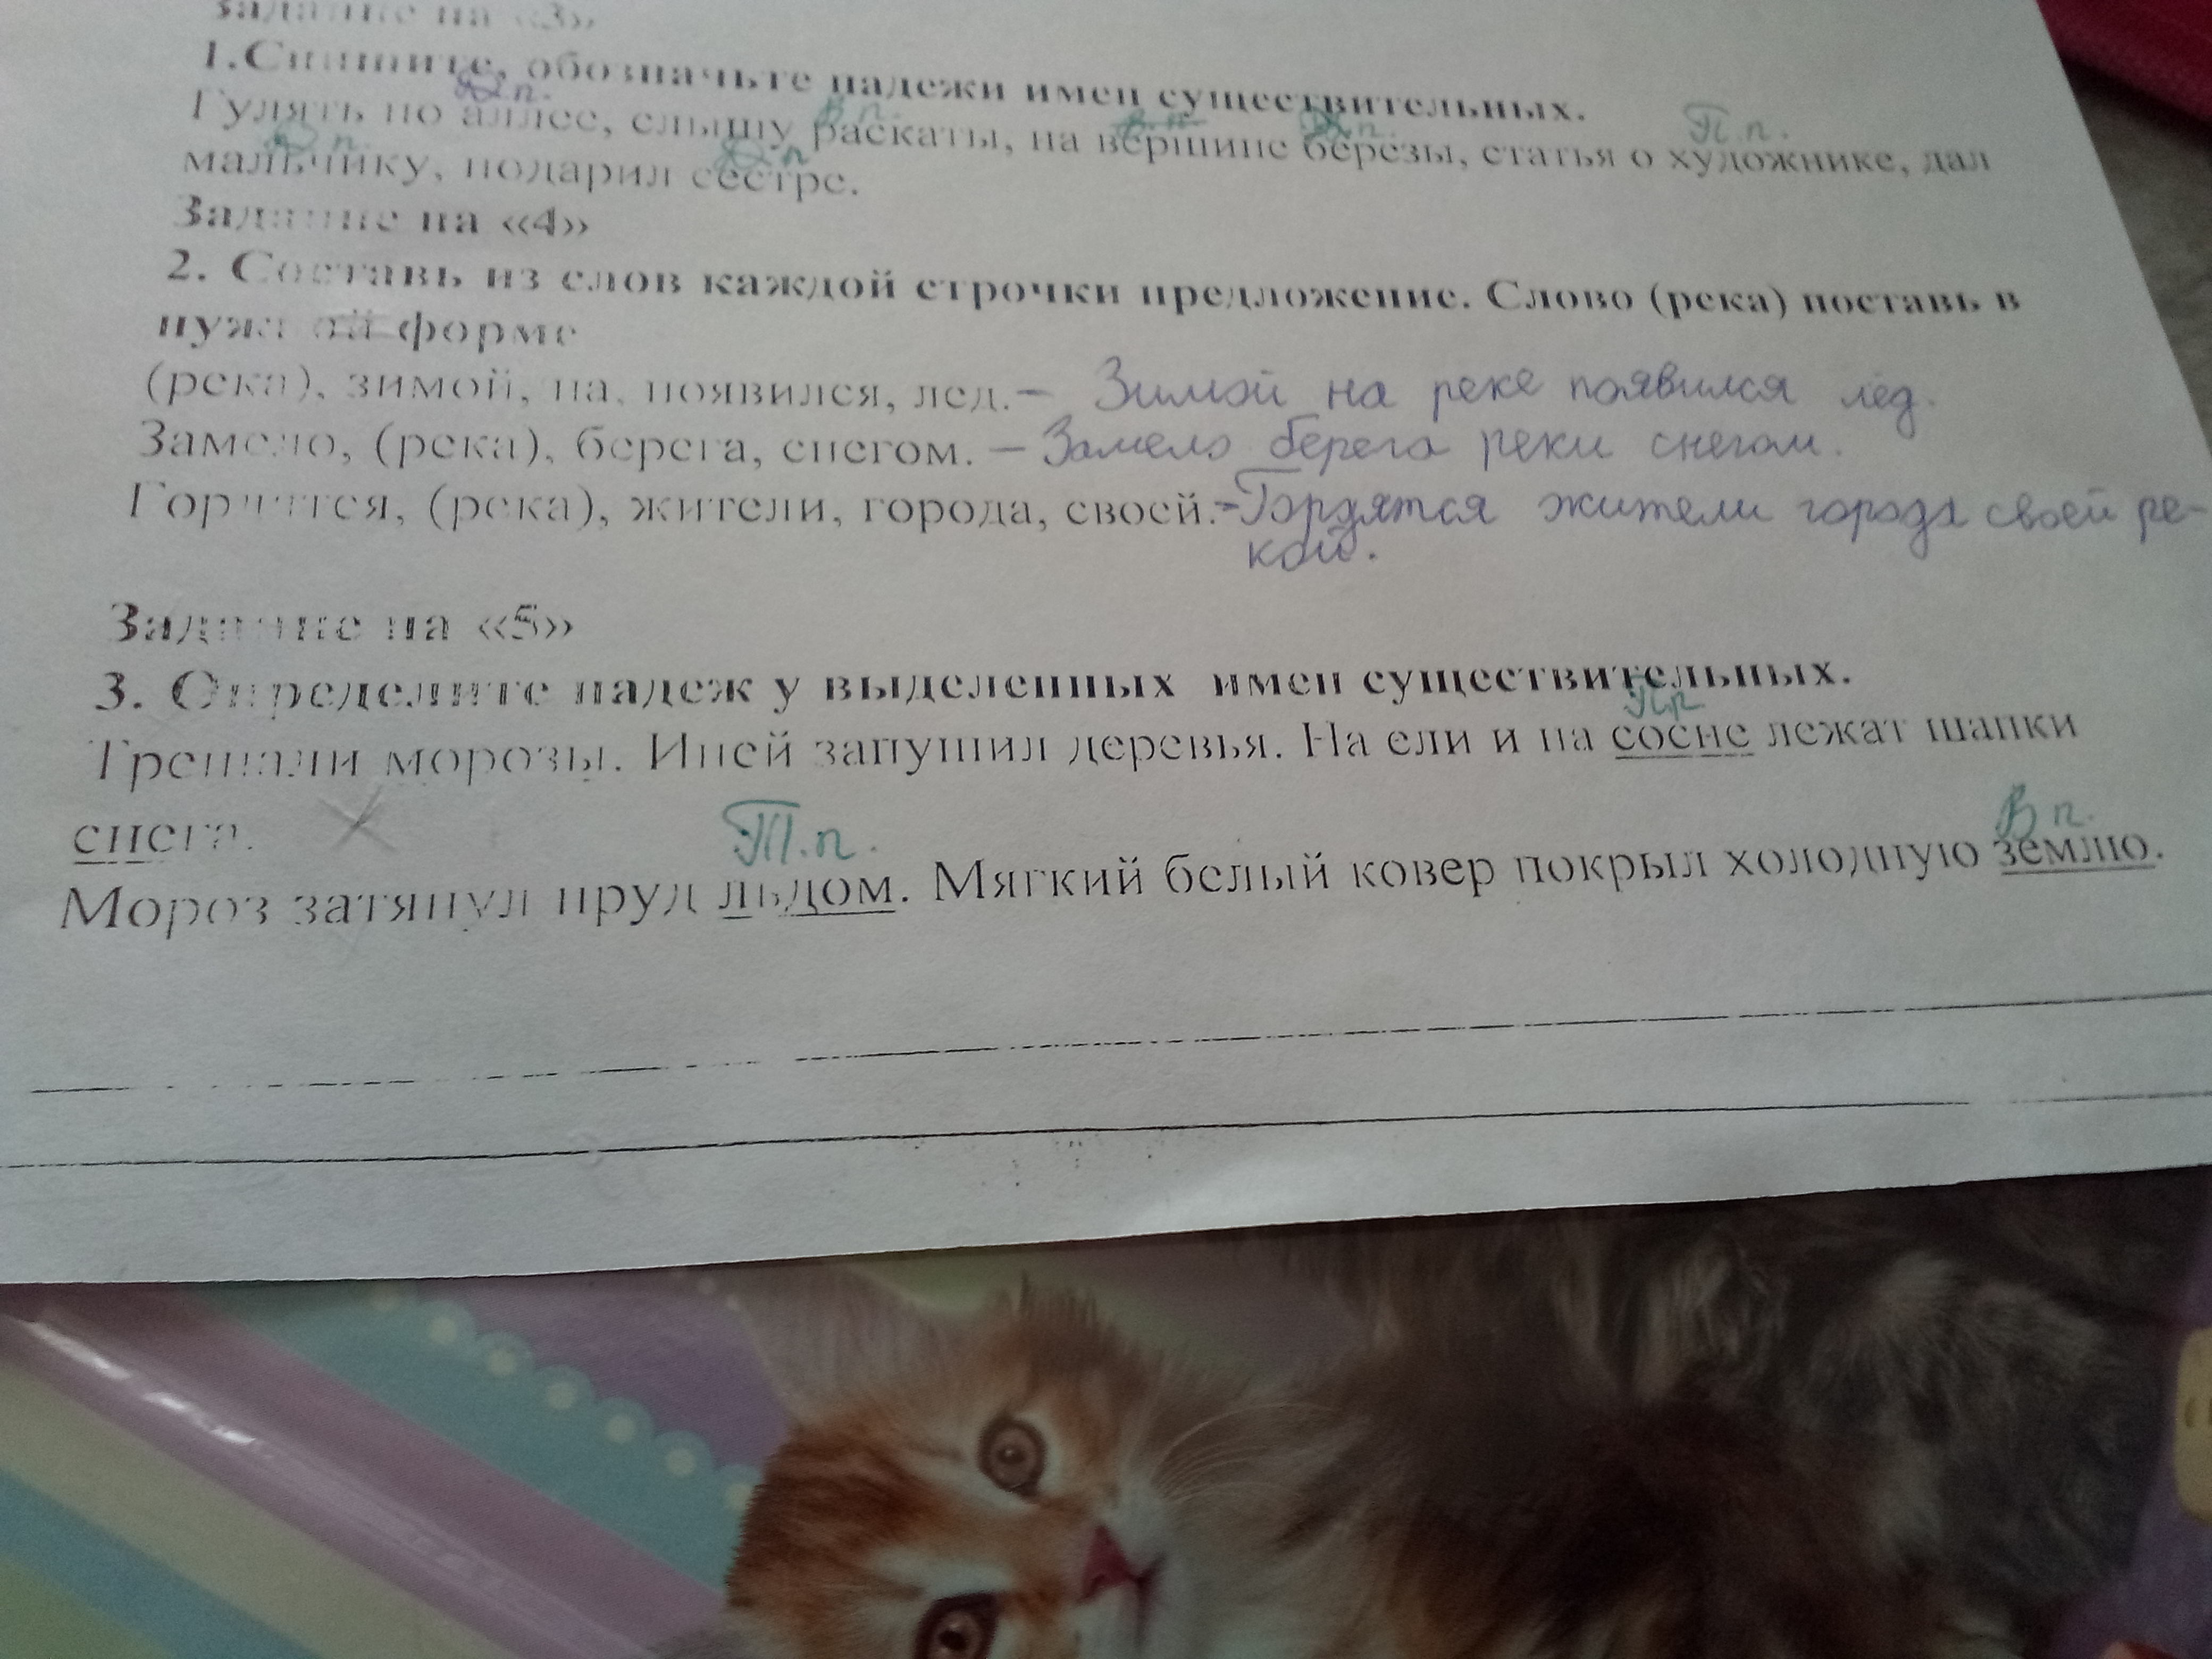 Задание на «3»
1.Спишите, обозначьте падежи имен существительных.
Д.п. В п. В.п Д.п. П.п.
Гулять по аллее, слышу раскаты, на вершине березы, статья о художнике, дал
Д.п. Д.п
мальчику, подарил сестре.
Задание на «4»
2. Составь из слов каждой строчки предложение. Слово (река) поставь в
нужной форме
(река), зимой, на, появился, лед. – Зимой на реке появился лёд.
Замело, (река), берега, снегом. – Замело берега реки снегом.
Гордятся, (река), жители, города, своей. – Гордятся жители города своей ре-
кой.
Задание на «5»
3. Определите падеж у выделенных имен существительных.
П.п
Трещали морозы. Иней запушил деревья. На ели и на сосне лежат шапки
снега.
Т.п. В п.
Мороз затянул пруд льдом. Мягкий белый ковер покрыл холодную землю.